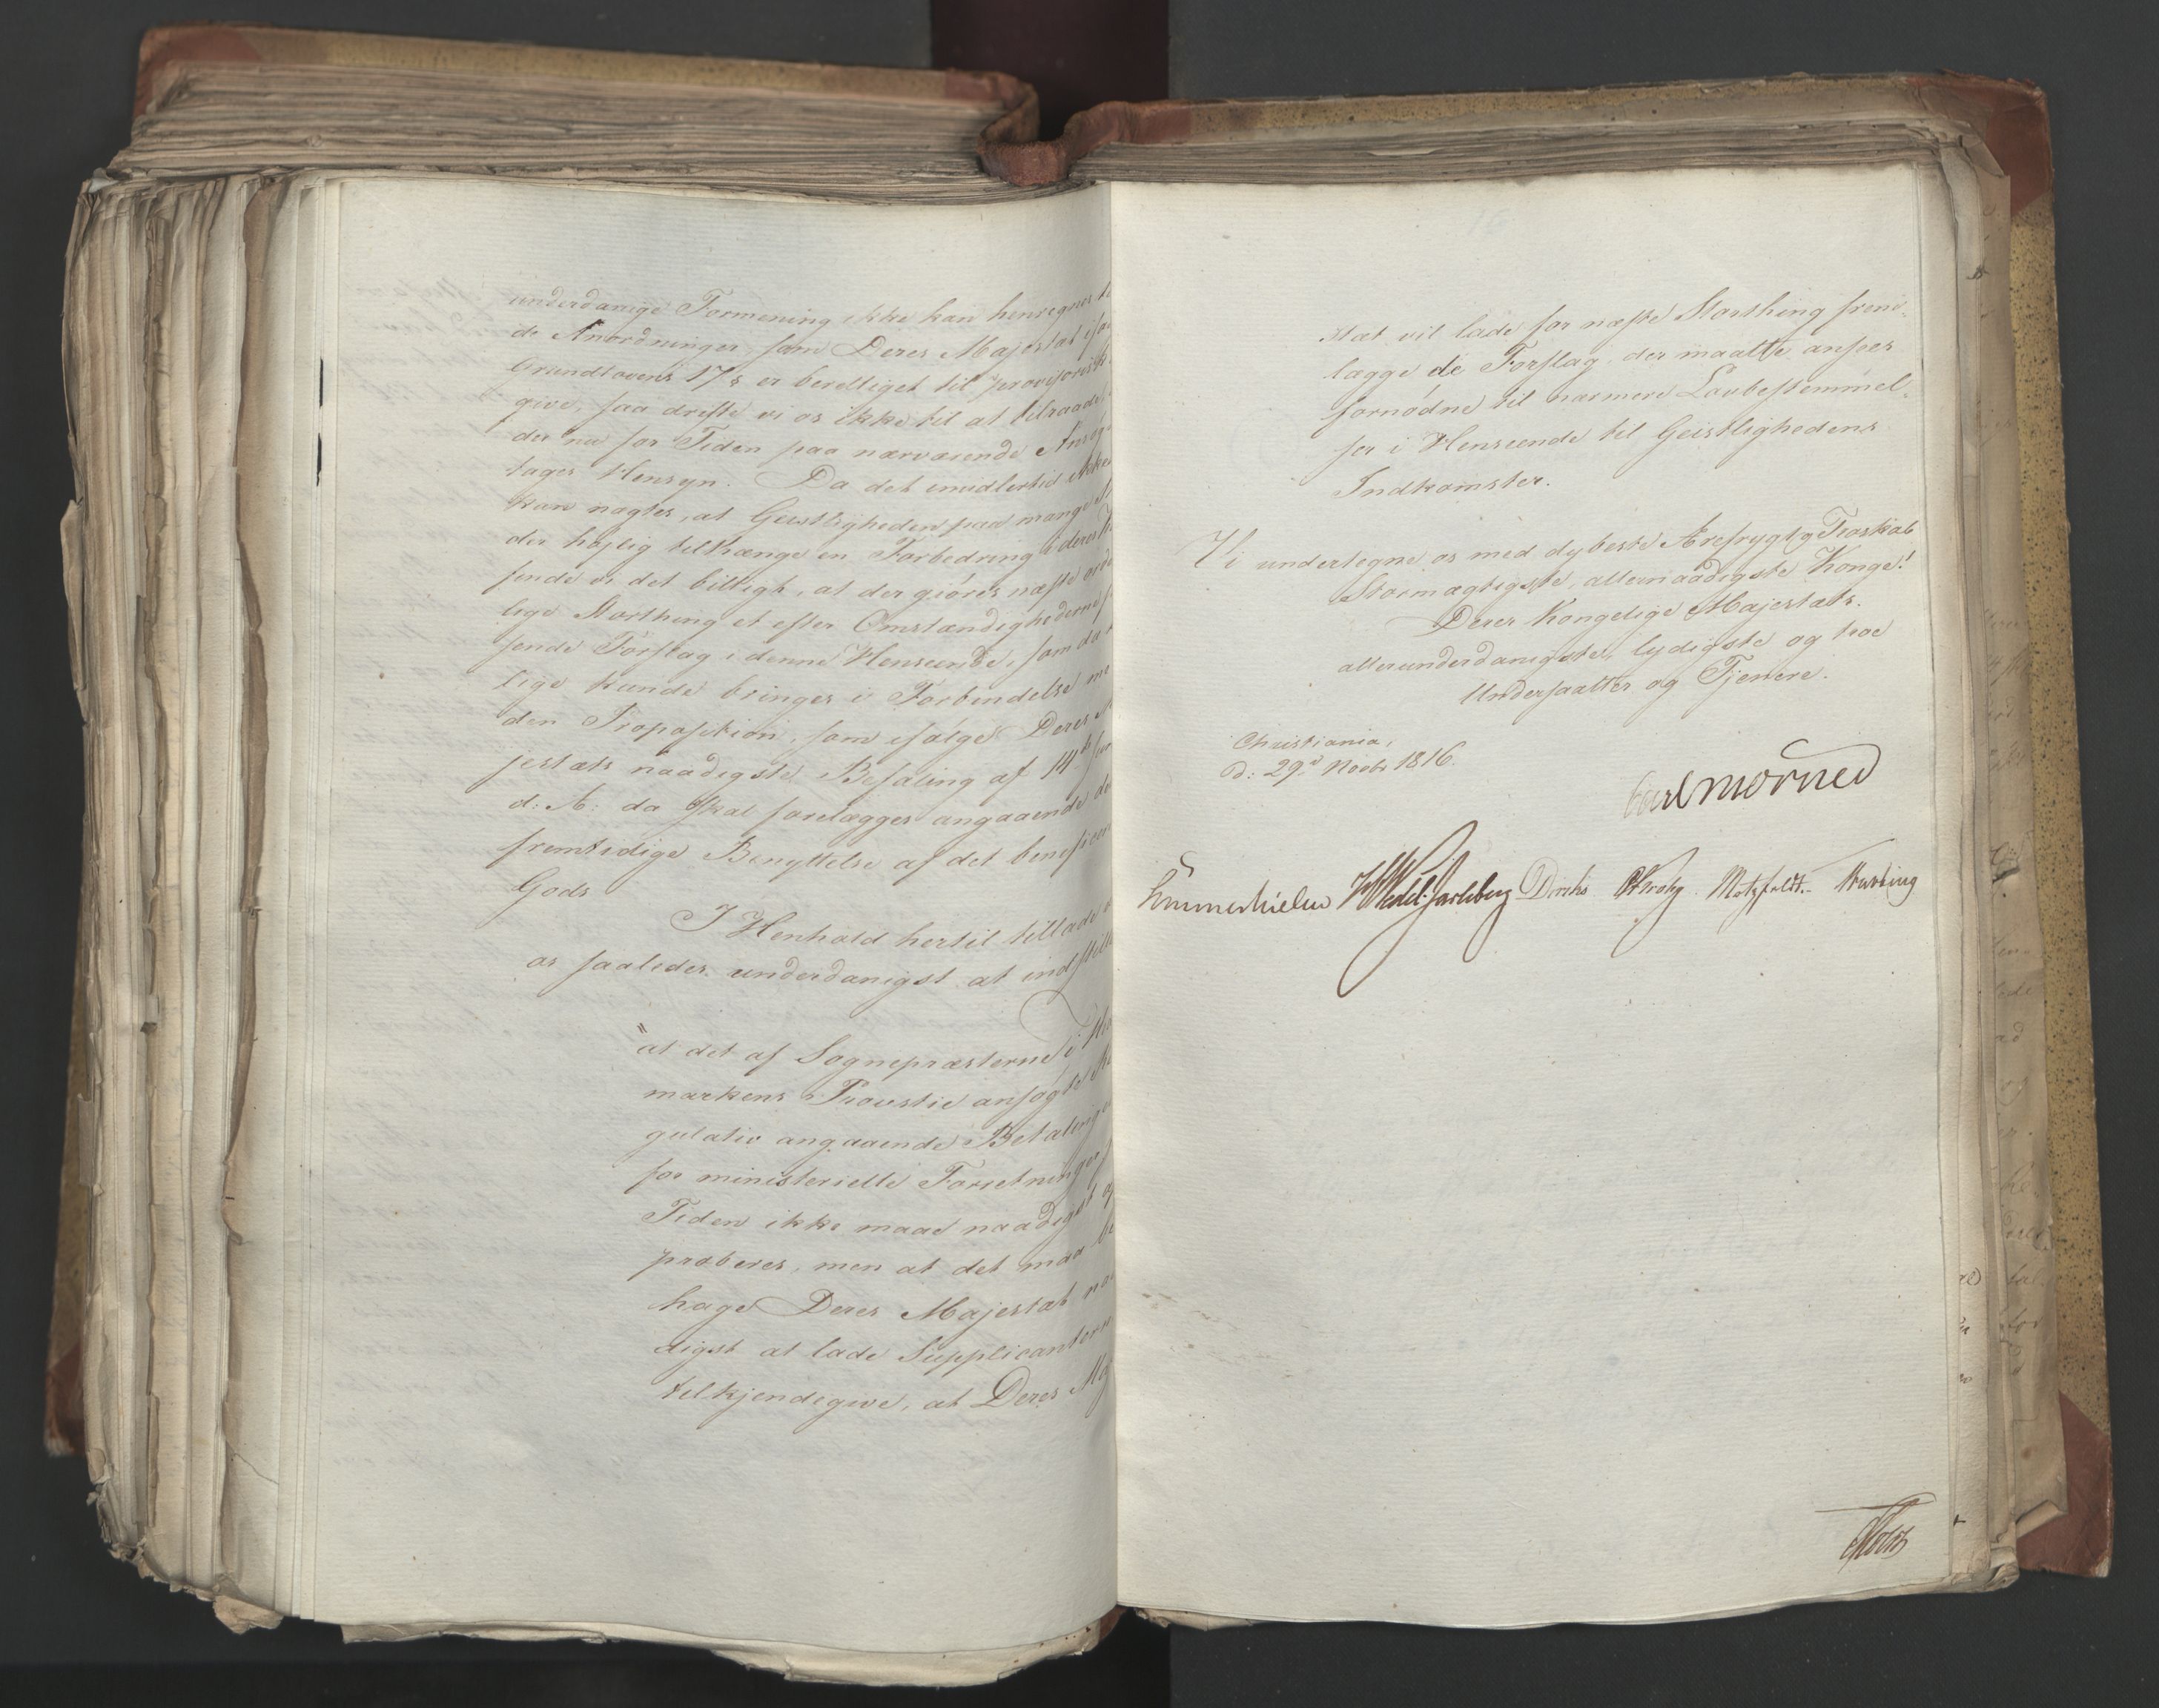 underdanige Formening ikke kan henregnes
de Anordninger, som Deres Majestæt
Grundlovens 17 § er berettiget til provisorisk
give, saa drifte vi os ikke til at tilraade,
der nu for Tiden paa nærværende
tages Hensyn. Da det imidlertid ikke
kan nægtes, at Geistligheden paa mange
der højlig tiltrænge en Forbedring i deres
finde vi det billigt, at der giøres næste
lige Storthing et efter Omstændighederne
sende Forslag i denne Henseende, som
lige kunde bringes i Forbindelse
den Proposition, som ifølge Deres
jestæts naadigste Befaling af 14de
d: A: da skal forelægges angaaende
fremtidige Benyttelse af det
Gods
I Henhold hertil tillade
os saaledes underdanigst at indstille
"at det af Sognepræsterne i
markens Provstie ansøgte
gulativ angaaende Betaling
for ministerielle Forretninger
Tiden ikke maae naadigst
proberes, men at det maa
hage Deres Majestæt
digst at lade Supplicanterne
tilkjendegive, at Deres
stæt vil lade for næste Storthing frem-
lægge de Forslag, der maatte ansees
fornødne til nærmere Lovbestemmel-
ser i Henseende til Geistlighedens
Indkomster.
Vi undertegne os med dybeste Ærefrygt og Troskab
Stormægtigste, allernaadigste Konge!
Deres Kongelige Majestæts
allerunderdanigste, lydigste og troe
Undersaatter og Tjenere.
Christiania,
d: 29d Novbr 1816.
Carl Mörner
Sommerhielm HWedel-Jarlsberg Diriks Krohg Motzfeldt
Holst